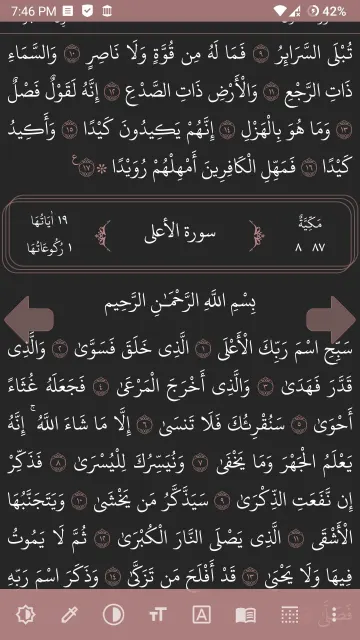 7:46 PM 42%
تُبْلَى السَّرَايِٕرُ ٩ فَمَا لَهُ مِن قُوَّةٍ وَلَا نَاصِرٍ ١٠ وَالسَّمَاءِ
ذَاتِ الرَّجْعِ ١١ وَالْأَرْضِ ذَاتِ الصَّدْعِ ١٢ إِنَّهُ لَقَوْلٌ فَصْلٌ
١٣ وَمَا هُوَ بِالْهَزْلِ ١٤ إِنَّهُمْ يَكِيدُونَ كَيْدًا ١٥ وَأَكِيدُ
كَيْدًا ١٦ فَمَهِّلِ الْكَافِرِينَ أَمْهِلْهُمْ رُوَيْدًا ۞ ١٧ ع
مَكِّيَّةٌ سورة الأعلى ١٩ اٰيَاتُهَا
٨٧ ٨ ١ رُكُوعَاتُهَا
بِسْمِ اللَّهِ الرَّحْمَـٰنِ الرَّحِيمِ
سَبِّحِ اسْمَ رَبِّكَ الْأَعْلَى ١ الَّذِي خَلَقَ فَسَوَّىٰ ٢ وَالَّذِي
قَدَّرَ فَهَدَىٰ ٣ وَالَّذِي أَخْرَجَ الْمَرْعَىٰ ٤ فَجَعَلَهُ غُثَاءً
أَحْوَىٰ ٥ سَنُقْرِئُكَ فَلَا تَنسَىٰ ٦ إِلَّا مَا شَاءَ اللَّهُ ۚ إِنَّهُ
يَعْلَمُ الْجَهْرَ وَمَا يَخْفَىٰ ٧ وَنُيَسِّرُكَ لِلْيُسْرَىٰ ٨ فَذَكِّرْ
إِن نَّفَعَتِ الذِّكْرَىٰ ٩ سَيَذَّكَّرُ مَن يَخْشَىٰ ١٠ وَيَتَجَنَّبُهَا
الْأَشْقَى ١١ الَّذِي يَصْلَى النَّارَ الْكُبْرَىٰ ١٢ ثُمَّ لَا يَمُوتُ
فِيهَا وَلَا يَحْيَىٰ ١٣ قَدْ أَفْلَحَ مَن تَزَكَّىٰ ١٤ وَذَكَرَ اسْمَ رَبِّهِ
فَصَلَّىٰ